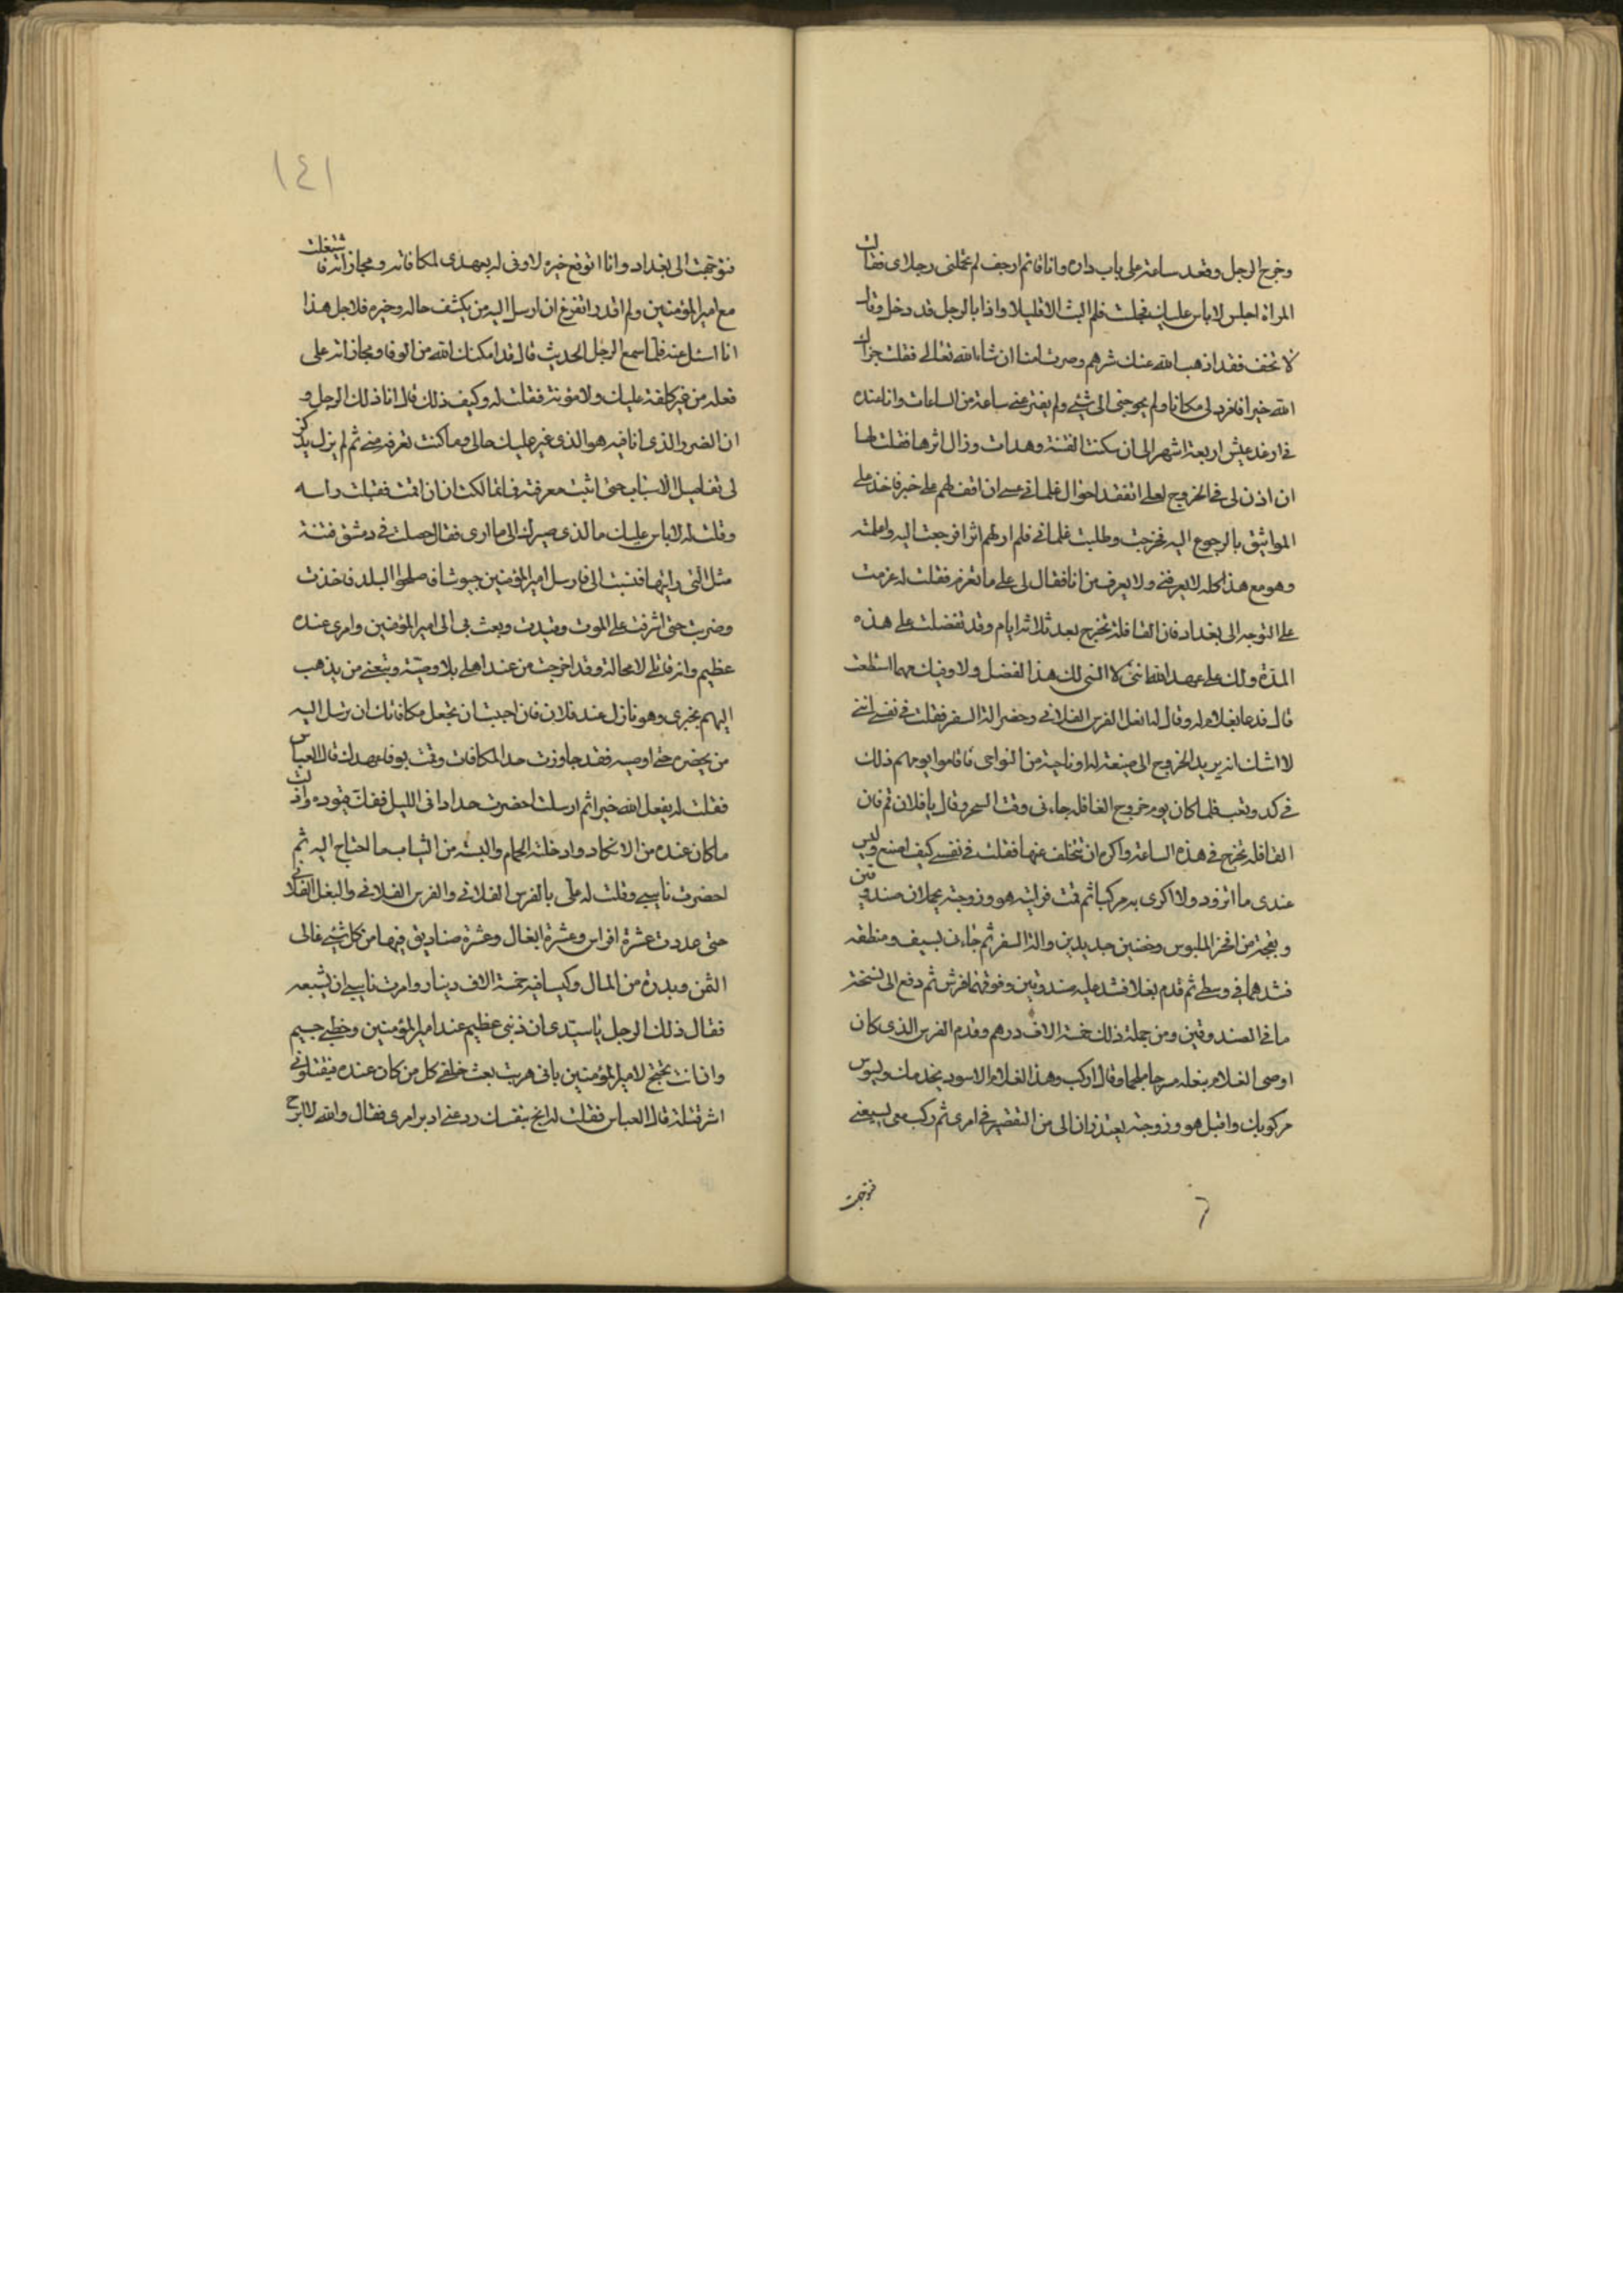 وخرج الرجل وقعد ساعة على باب داره وانا قائم ارجف لم تحملنى رجلاى فقالت
المراة اجلس لا باس عليك فجلست فلم البث الا قليلا واذا بالرجل قد دخل وقال
لا تخف فقد اذهب الله عنك شرهم وصرت امنا ان شاء الله تعالى فقلت جزاك
الله خيرا فافرد لى مكانا ولم يحوجنى الى شئ ولم يفتر عنى ساعة من الساعات وانا عنده
فى ارغد عيش اربعة اشهر الى ان سكنت الفتنة وهدات وزال اثرها فقلت لها
ان اذن لى فى الخروج لعلى اتفقد احوال غلمانى عسى ان اقف لهم على خبر فاخذ على
المواثيق بالرجوع اليه فخرجت وطلبت غلمانى فلم ار لهم اثرا فرجعت اليه واعلمته
وهو مع هذا كله لا يعرفنى ولا يعرف من انا فقال لى على ما تعزم فقلت له عزمت
على التوجه الى بغداد فان القافلة تخرج بعد ثلاثة ايام وقد تفضلت على هذه
المدة ولك على عهد الله اننى لا انسى لك هذا الفضل ولاوفيك مهما استطعت
قال فدعا بغلام له وقال له انعل الفرس الفلانى وحضر الة السفر فقلت فى نفسى اننى
لا اشك انه يريد الخروج الى ضيعة له او ناحية من النواحى فاقاموا يومهم ذلك
فى كد وتعب فلما كان يوم خروج القافله جاءنى وقت السحر وقال يا فلان قم فان
القافله تخرج فى هذه الساعة واكره ان تتخلف عنها فقلت فى نفسى كيف اصنع وليس
عندى ما اتزود ولا اكرى به مركبا ثم قمت فرايته هو وزوجته يحملان صندوقين
وبقجة من افخر الملبوس وخفين جديدين والة السفر ثم جاءنى بسيف ومنطقه
فشدهما فى وسطى ثم قدم بغلا فشد عليه صندوقين وفوقهما فرش ثم دفع الى نسخة
ما فى الصندوقين ومن جملة ذلك خمسة الاف درهم وقدم الفرس الذى كان
اوصى الغلام بنعله مسرجا ملجما وقال اركب وهذا الغلام الاسود يخدمك ويسوس
مركوبك واقبل هو وزوجته يعتذران الى من التقصير فى امرى ثم ركب معى يشيعنى
فتوجهت
فتوجهت الى بغداد وانا اتوقع خبره لاوفى له بعهدى لمكافاته ومجازاته فاشتغلت
مع امير المؤمنين ولم اقدر اتفرغ ان ارسل اليه من يكشف حاله وخبره فلاجل هذا
انا اسئل عنه فلما سمع الرجل الحديث قال قد امكنك الله من الوفا ومجازاته على
فعله من غير كلفة عليك ولا مؤنة فقلت له وكيف ذلك قال انا ذلك الرجل و
ان الضر والذى انا فيه هو الذى غير عليك حالى وما كنت تعرفه منى ثم لم يزل يذكر
لى تفاصيل الاسباب حتى اثبت معرفته فما تمالكت ان قمت فقبلت راسه
وقلت له لا باس عليك ما الذى صيرك الى ما ارى فقال حصلت فى دمشق فتنة
مثل التى رايتها فنسبت الى فارسل امير المؤمنين جيوشا فصلحوا البلد فاخذت
وضربت حتى اشرفت على الموت وقيدت وبعث بى الى امير المؤمنين وامرى عنده
عظيم وانه قاتلى لا محالة وقد اخرجت من عند اهلى بلا وصية وتبعنى من يذهب
اليهم بخبرى وهو نازل عند فلان فان احببت ان تجعل مكافاتك ان ترسل اليه
من يحضره حتى اوصيه فقد جاوزت حد المكافات وقمت بوفا عهدك قال العباس
فقلت له يفعل الله خيرا ثم ارسلت احضرت حدادا فى الليل ففك قيوده وازال
ما كان عنده من الانكاد وادخلته الحمام والبسته من الثياب ما احتاج اليه ثم
احضرت نايبى وقلت له على بالفرس الفلانى والفرس الفلانى والبغل الفلانى
حتى عددت عشرة افراس وعشرة ابغال وعشرة صناديق فيها من كل شئ غالى
الثمن وبدرة من المال وكيسا فيه خمسة الاف دينار وامرت نايبى ان يشيعه
فقال ذلك الرجل يا سيدى ان ذنبى عظيم عند امير المؤمنين وخطبى جسيم
وان انت تحتج لامير المؤمنين بانى هربت بعث خلفى كل من كان عنده فيقتلونى
اشر قتلة قال العباس فقلت له انج بنفسك ودعنى ادبر امرى فقال والله لا ابرح
١٤١